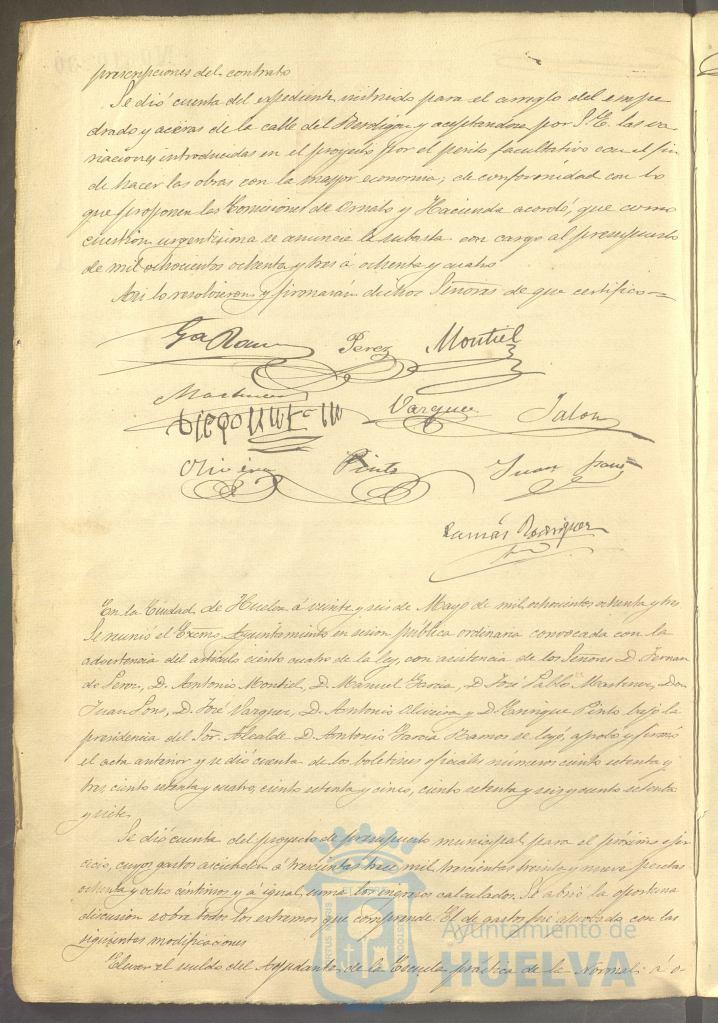 prescripciones del contrato
Se dió cuenta del expediente instruido para el arreglo del empe
drado y aceras de la calle del Berdigon y aceptandose por S. E. las va
riaciones introducidas en el proyecto por el perito facultativo con el fin
de hacer las obras con la mayor economia; de conformidad con lo
que proponen las Comisiones de Ornato y Hacienda acordó, que como
cuestion urgentisima se anuncie la subasta con cargo al presupuesto
de mil ochocientos ochenta y tres á ochenta y cuatro
Asi lo resolvieron y firmarán dichos Señores de que certifico=
Ga Ramos Perez Montiel
Martinez
Vazquez Jalon
Oliveira Pinto Juan
Rodriguez
En la Ciudad de Huelva á veinte y seis de Mayo de mil ochocientos ochenta y tres
Se reunio el Excmo. Ayuntamiento en sesion pública ordinaria convocada con la
advertencia del articulo ciento cuatro de la ley, con asistencia de los Señores D. Fernan
do Perez, D. Antonio Montiel, D. Manuel Garcia, D. José Pablo Martinez, Don
Juan Pons, D. José Vazquez, D. Antonio Oliveira y D. Enrique Pinto bajo la
presidencia del Sor. Alcalde D. Antonio Garcia Ramos se leyó, aprobó y firmó
el acta anterior y se dió cuenta de los boletines oficiales numeros ciento setenta y
tres, ciento setenta y cuatro, ciento setenta y cinco, ciento setenta y seis y ciento setenta
y siete.
Se dió cuenta del proyecto de presupuesto municipal para el próximo ejer
cicio, cuyos gastos ascienden á trescientas tres mil, trescientas treinta y nueve pesetas
ochenta y ocho céntimos y á igual suma los ingresos calculados. Se abrió la oportuna
discusion sobre todos los extremos que comprende. El de gastos fué aprobado con las
siguientes modificaciones
Elevar el sueldo del Ayudante de la Escuela práctica de la Normal á o
Ayuntamiento de
HUELVA